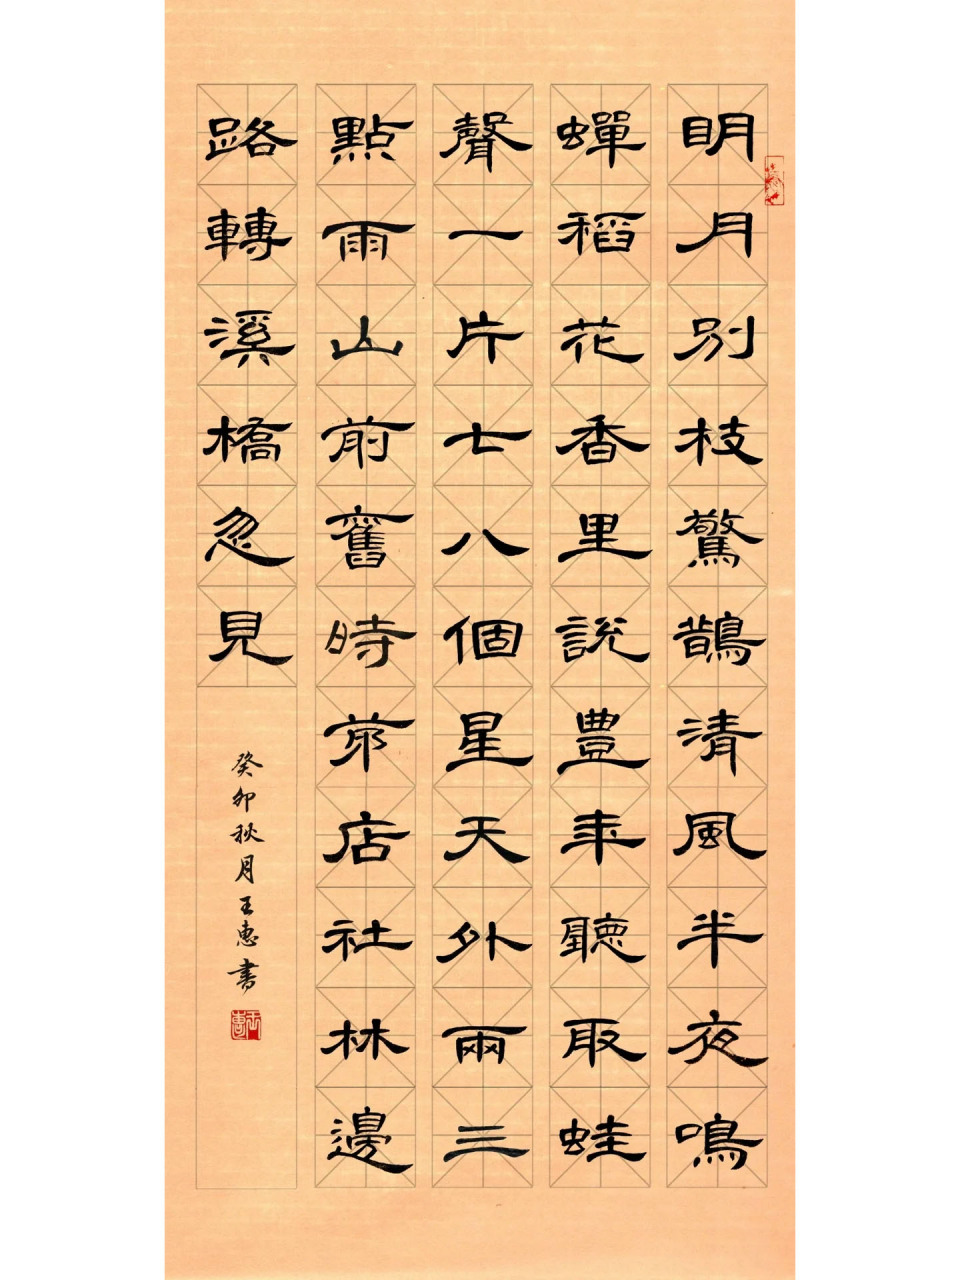 明月別枝驚鵲清風半夜鳴
蟬稻花香里説豊年聽取蛙
聲一片七八個星天外兩三
點雨山前舊時茆店社林邊
路轉溪橋忽見
癸卯秋月王惠書